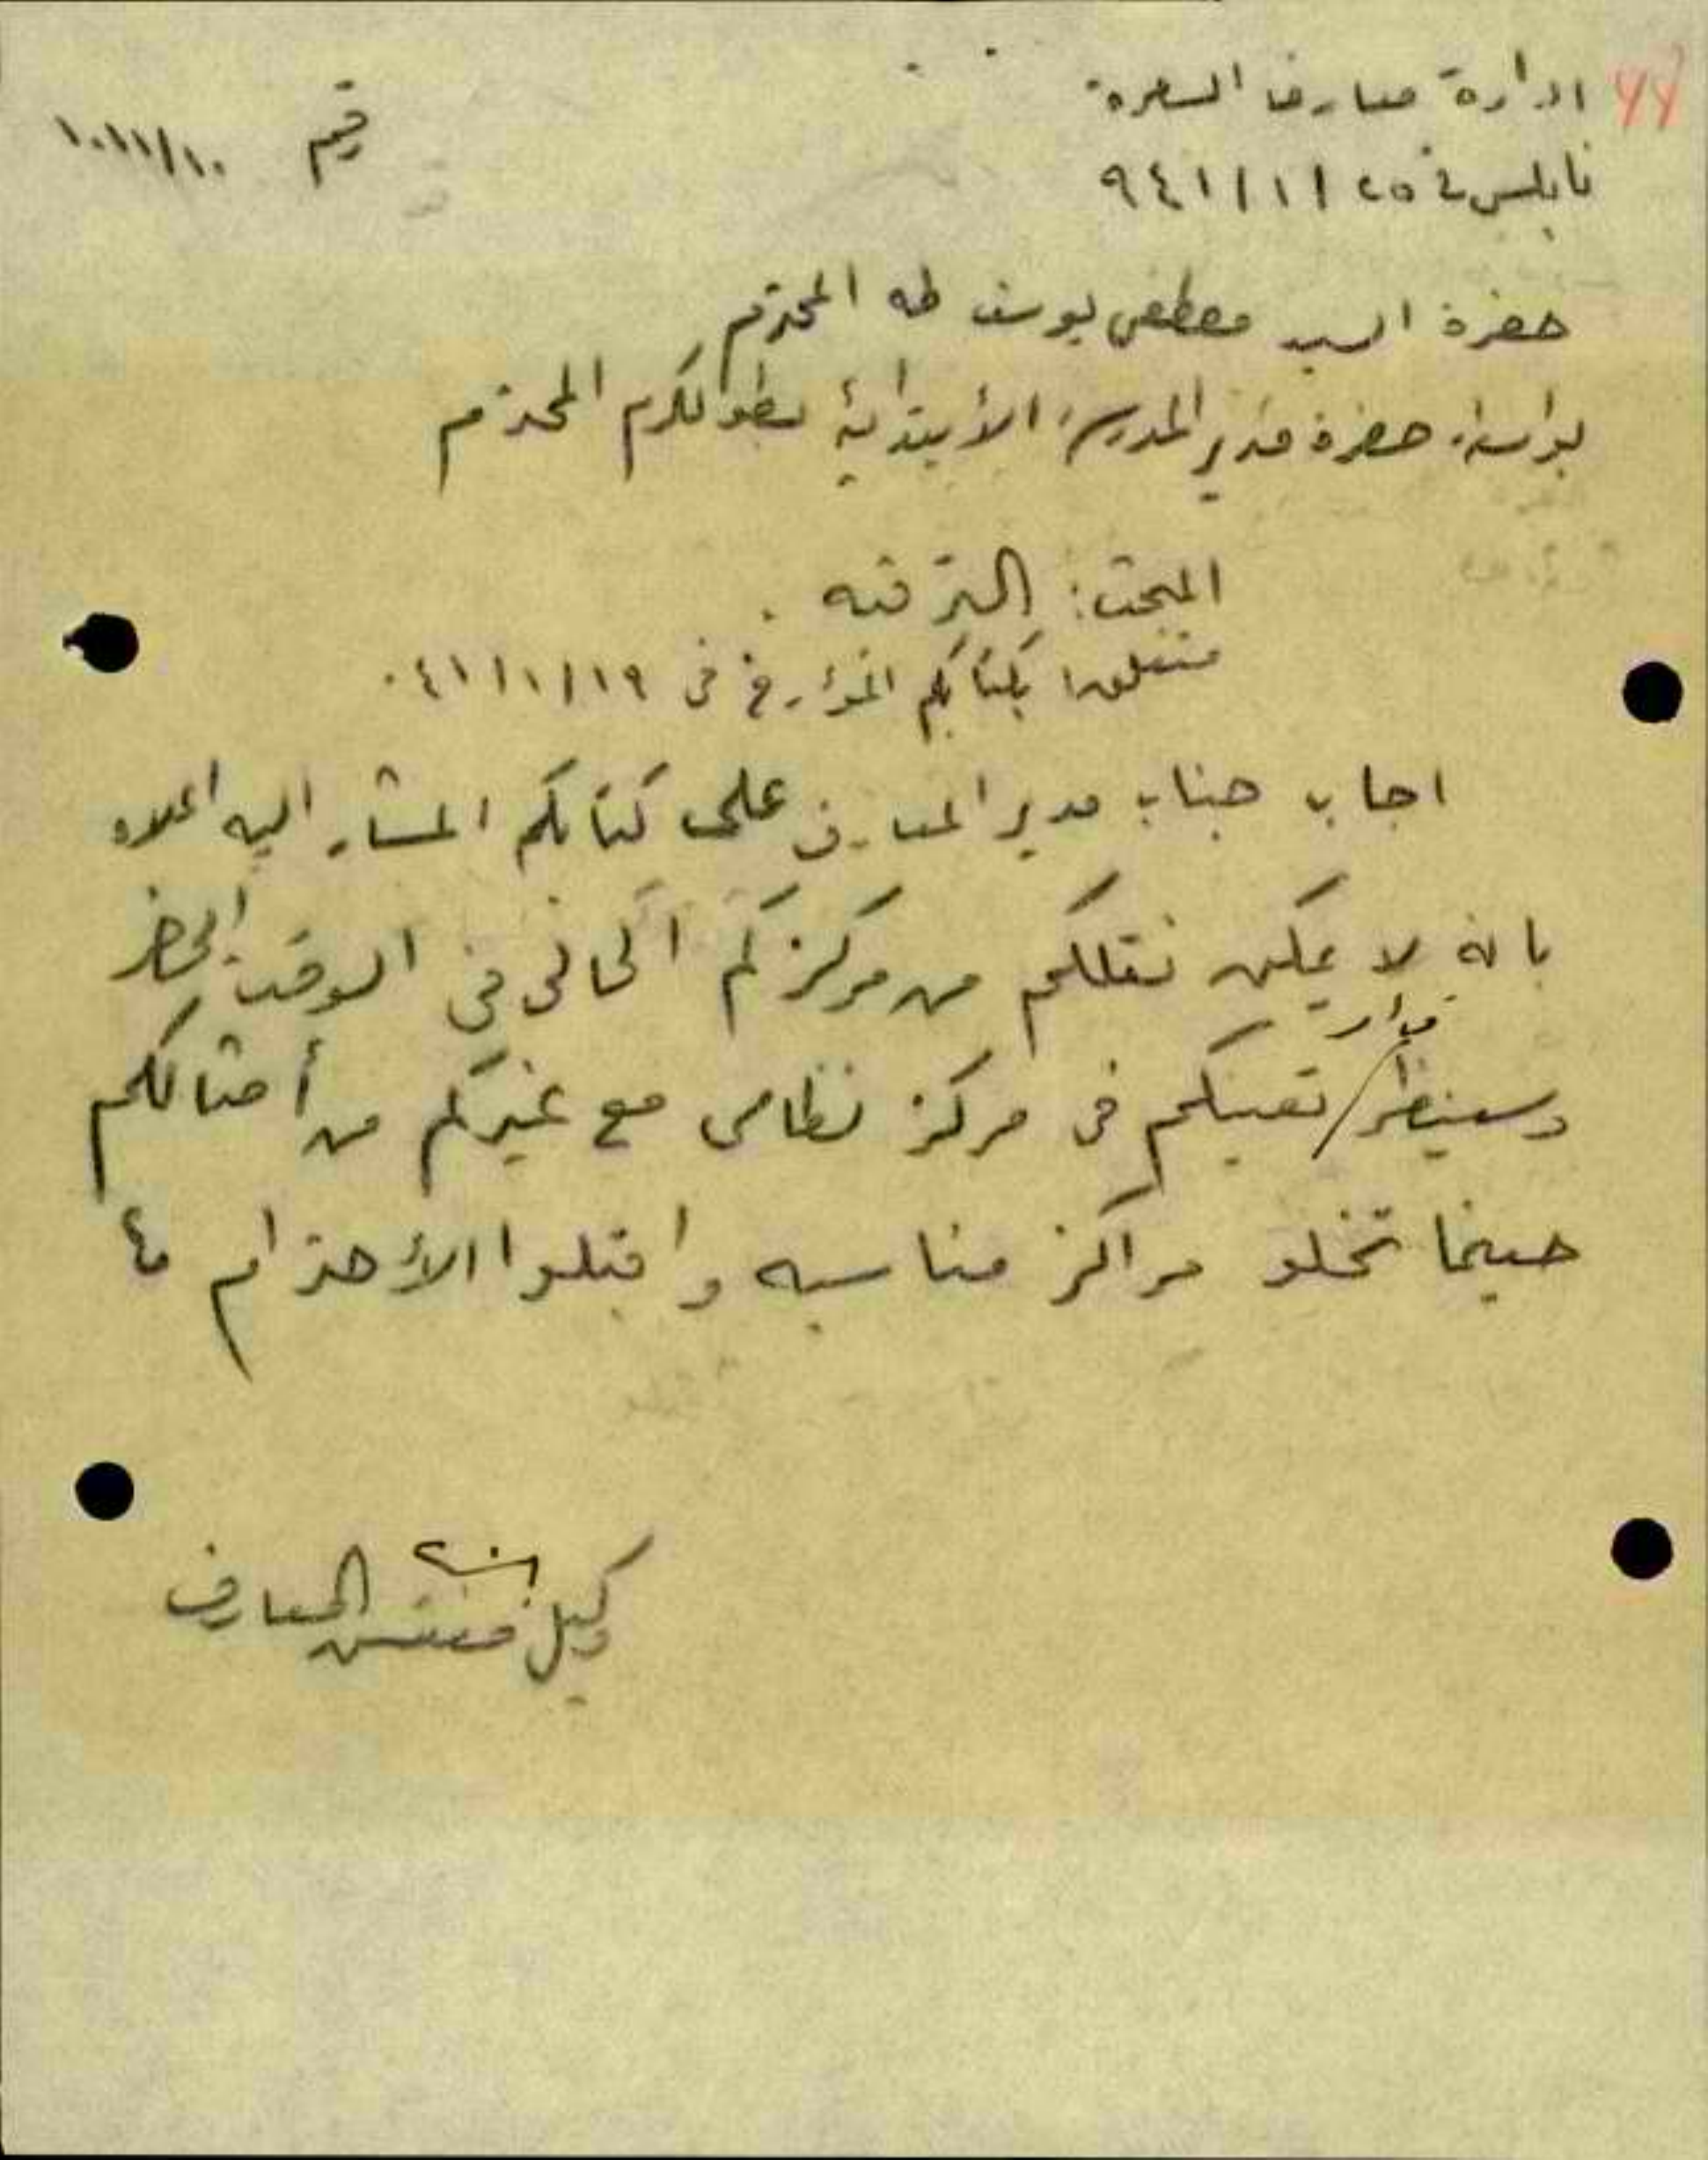 ادارة معارف السامرة
نابلس في ٢٥ / ١ / ٩٤١
رقم ١٠/١٠١١
حضرة السيد مصطفى يوسف طه المحترم
بواسطة حضرة مدير المدرسة الأبتدائية بطولكرم المحترم
المبحث: الترقيه .
متعلق بكتابكم المؤرخ في ١٩/١/٤١٠
اجاب جناب مدير المعارف على كتابكم المشار اليه اعلاه
بانه لا يمكن نقلكم من مركزكم الحالي في الوقت الحاضر
وسينظر في أمر تعينكم في مركز نظامي مع غيركم من أمثالكم
حينما تخلو مراكز مناسبه واقبلوا الأحترام
وكيل مفتش المعارف